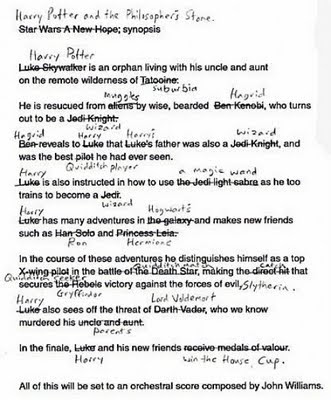 Harry Potter and the Philosopher's Stone.
Star Wars A New Hope; synopsis
Harry Potter
Luke Skywalker is an orphan living with his uncle and aunt
on the remote wilderness of Tatooine.
Muggles suburbia Hagrid
He is resucued from aliens by wise, bearded Ben Kenobi, who turns
out to be a Jedi Knight.
wizard
Hagrid Harry Harry's wizard
Ben reveals to Luke that Luke's father was also a Jedi Knight, and
was the best pilot he had ever seen.
Quidditch player
Harry a magic wand
Luke is also instructed in how to use the Jedi light sabre as he too
trains to become a Jedi.
wizard
Harry Hogwarts
Luke has many adventures in the galaxy and makes new friends
such as Han Solo and Princess Leia.
Ron Hermione
In the course of these adventures he distinguishes himself as a top
Quidditch match catch
X-wing pilot in the battle of the Death Star, making the direct hit that
Quidditch seeker
secures the Rebels victory against the forces of evil, Slytherin.
Gryffindor
Harry Lord Voldemort
Luke also sees off the threat of Darth Vader, who we know
murdered his uncle and aunt.
parents
In the finale, Luke and his new friends receive medals of valour.
Harry win the House Cup.
All of this will be set to an orchestral score composed by John Williams.